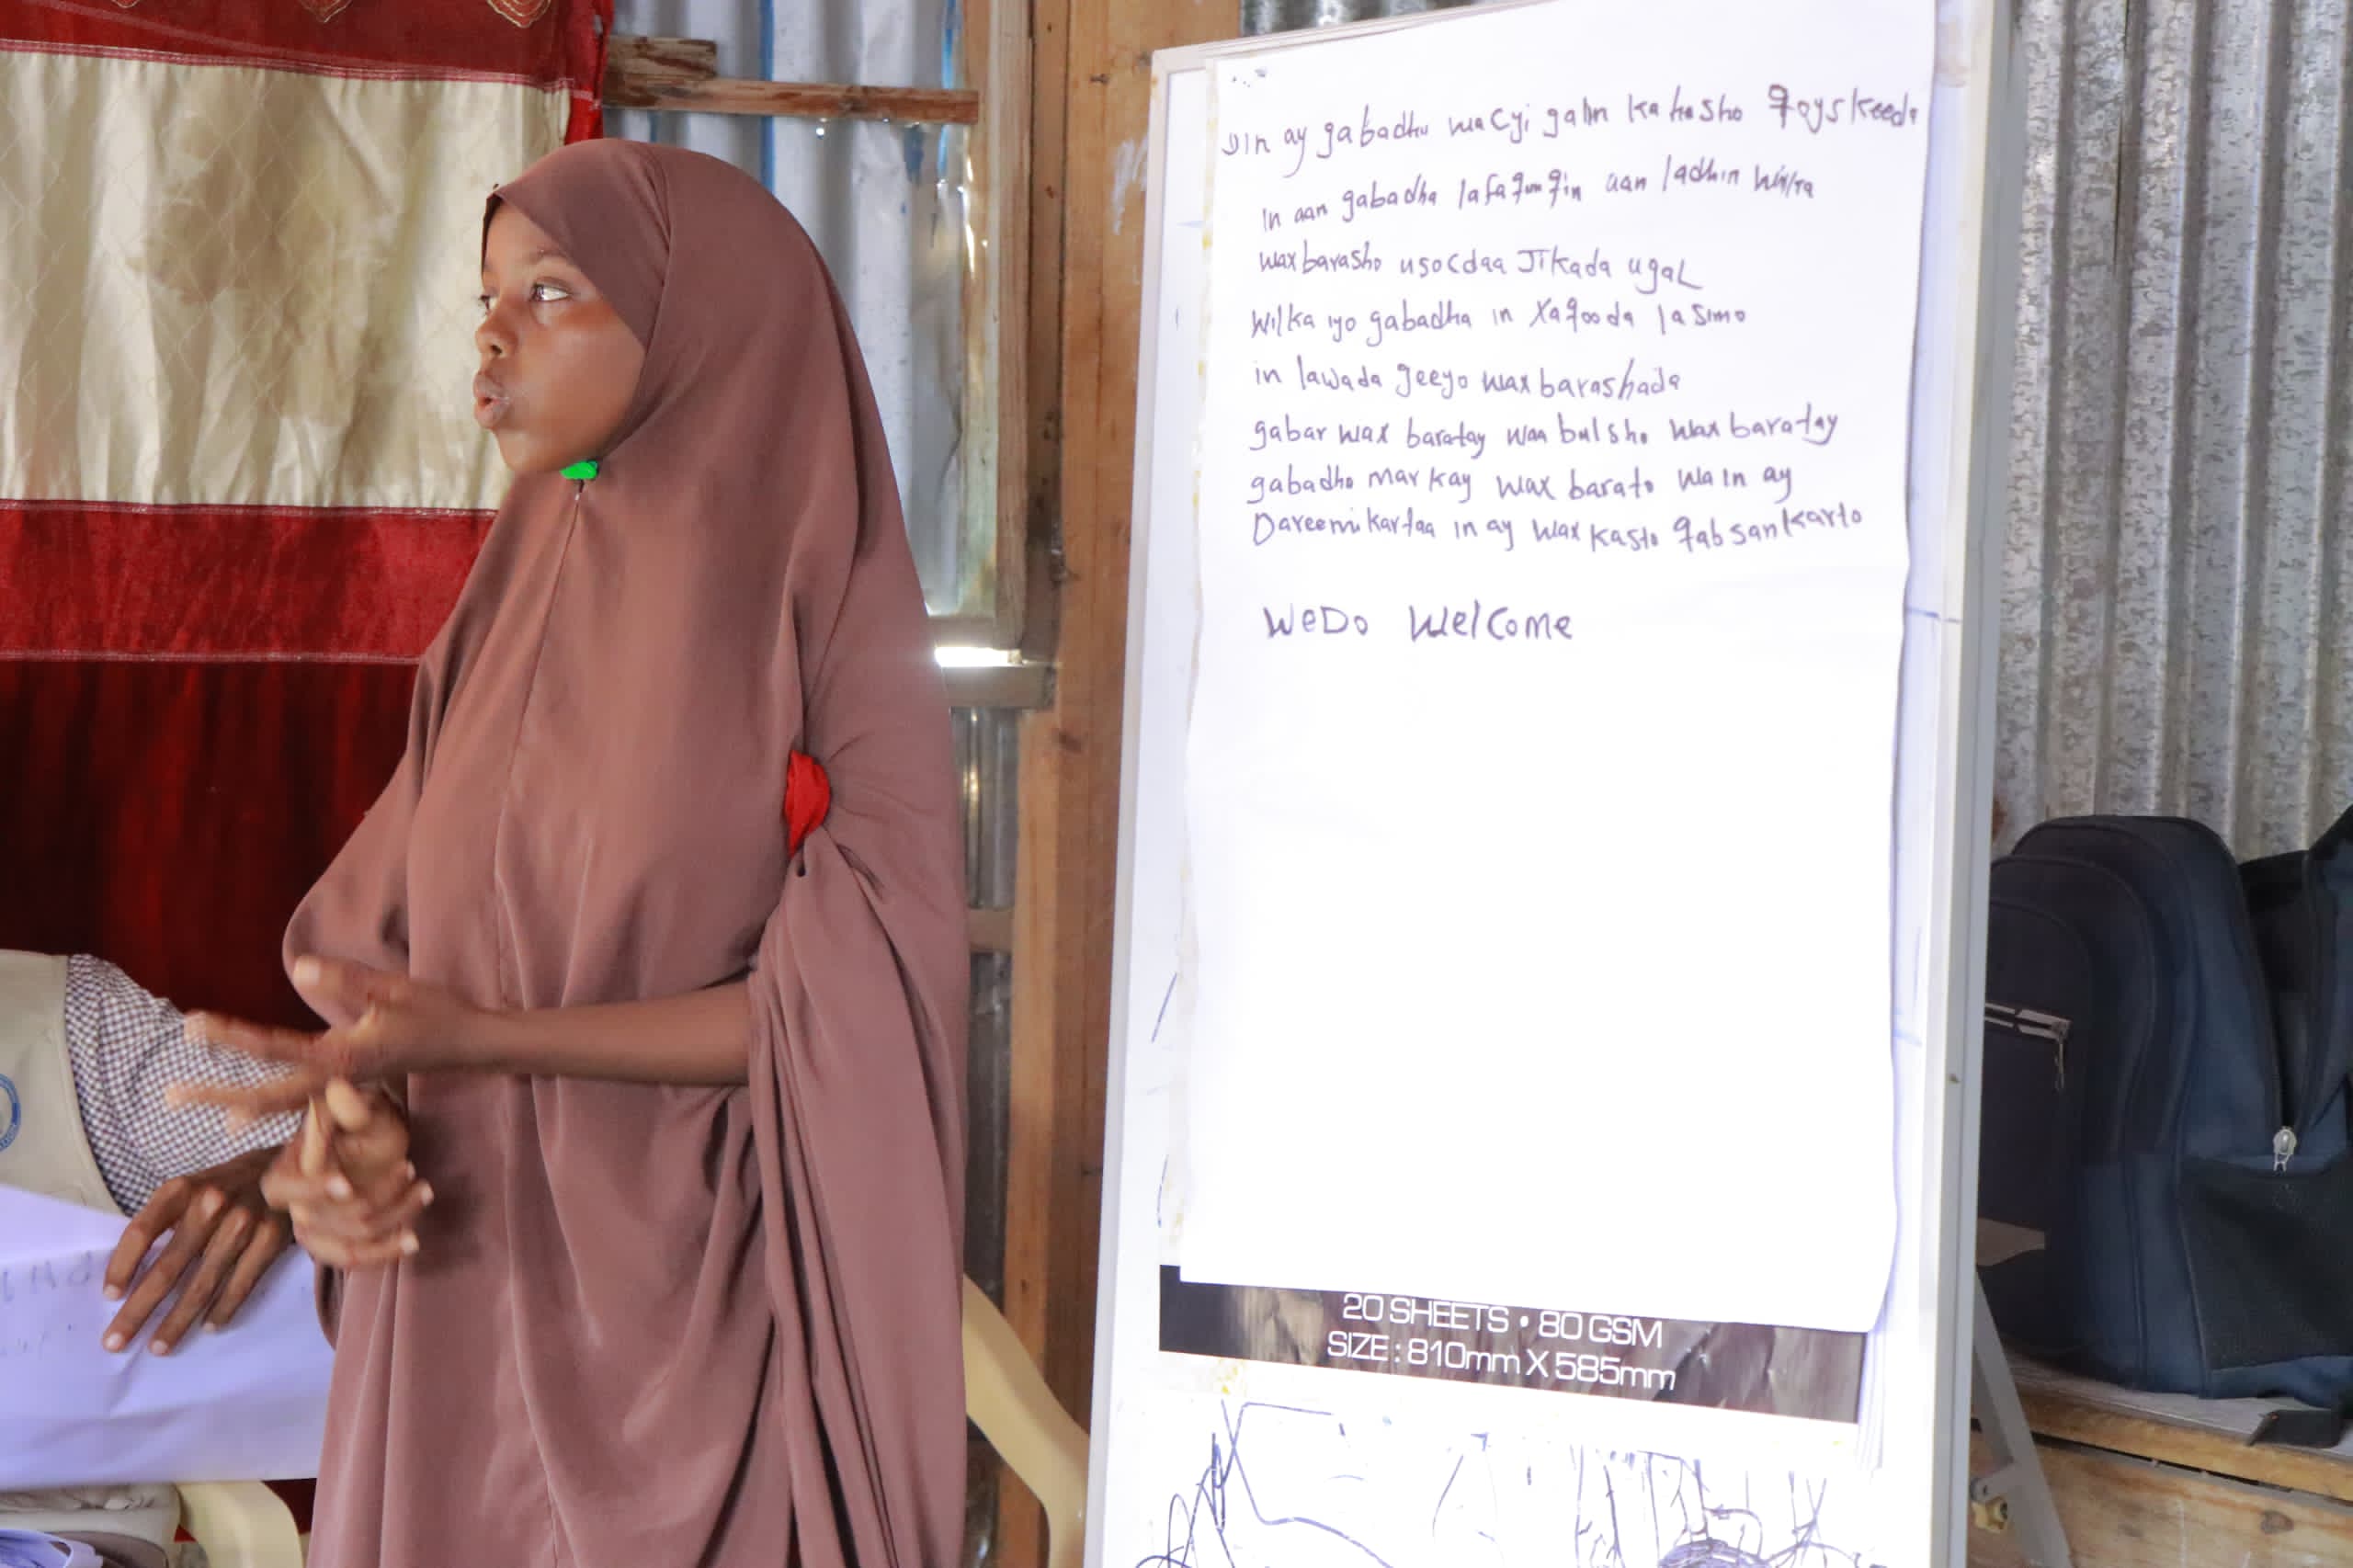 in ay gabadhu wacyi galin ka hesho qoyskeeda
in aan gabadha lafagungin aan ladhin wiilra
wax barasho usocdaa Jikada ugal
wilka iyo gabadha in Xaqooda lasimo
in lawada geeyo wax barashada
gabar wax baratay waa bulsho wax baratay
gabadho markay wax barato wa in ay
Dareemi kartaa in ay wax kasto qabsan karto
WeDo Welcome
20 SHEETS • 80 GSM
SIZE : 810mm X 585mm